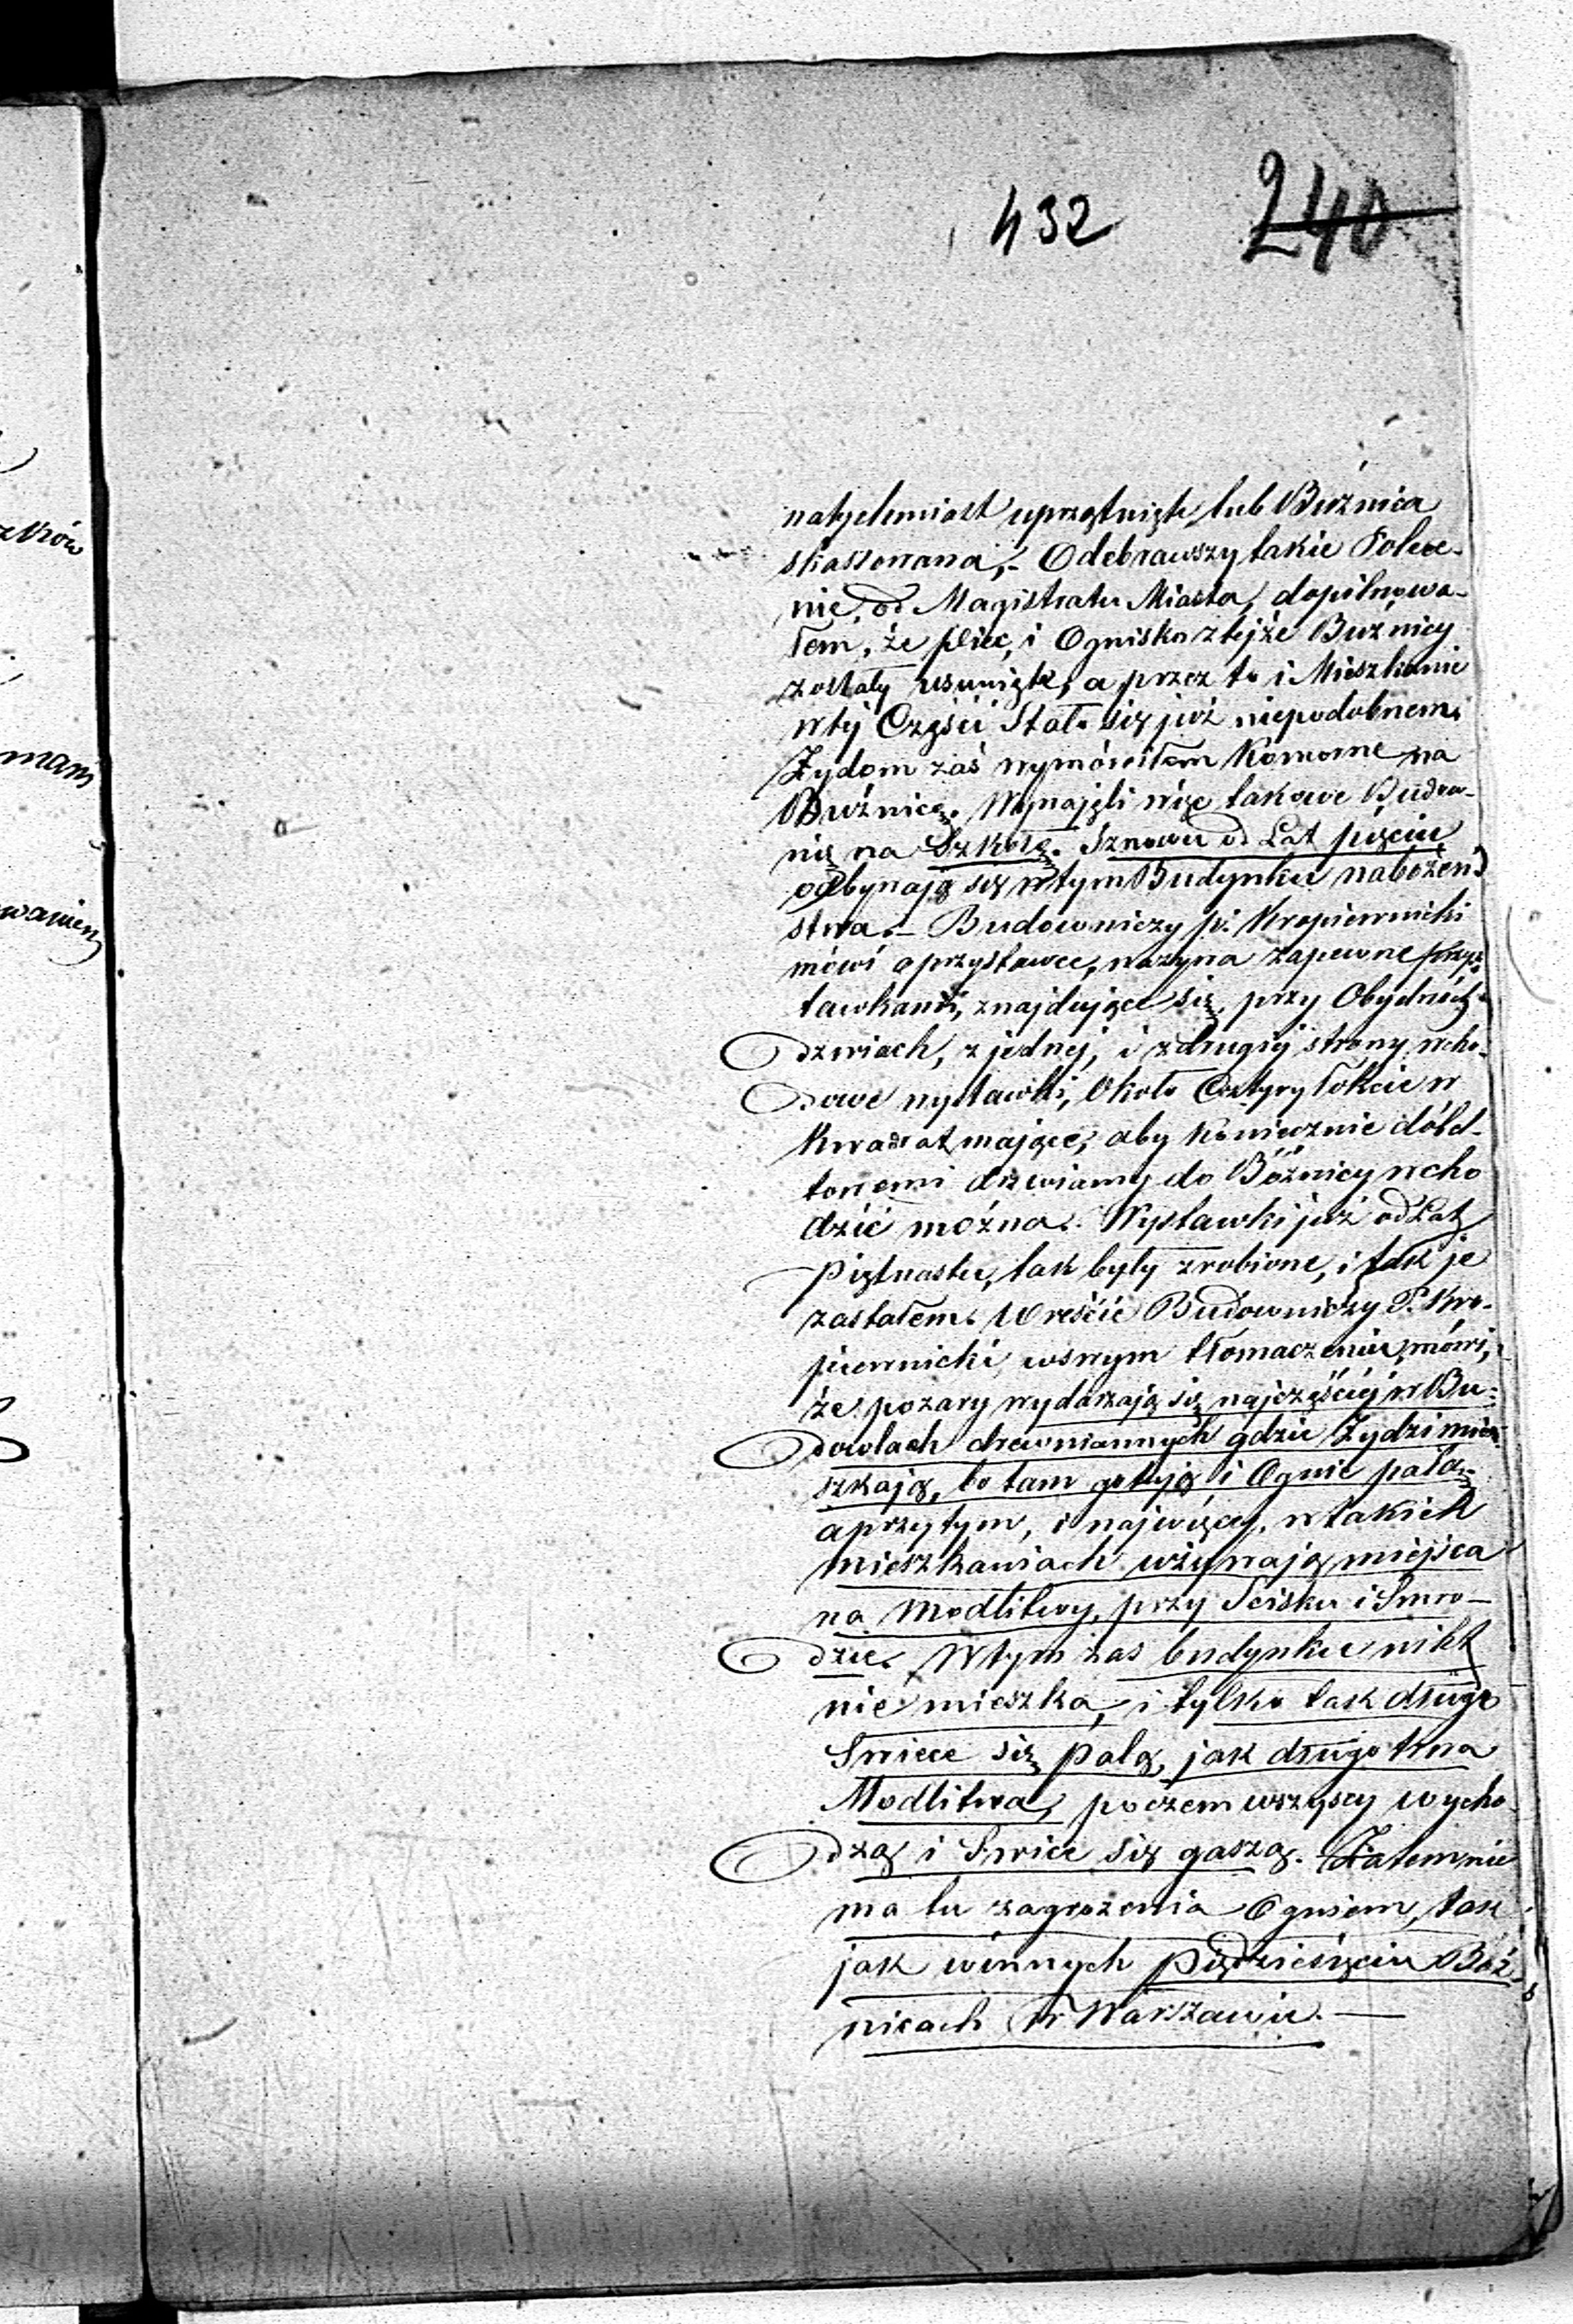 432 240
zków
mani
waniem
natychmiast uprzątnięte, lub Buźnica
skassowana,- Odebrawszy takie Polece-
nie, od Magistratu Miasta, dopilnowa-
łem, że piec, i Ognisko ztejże Buźnicy
zostały usunięte, a przez to i Mieszkanie
wtéj Części Stało się już niepodobnem.
Żydom zaś wymówiłem Komorne na
Buźnicę. Wynajęli więc takowe Budow-
nię na Szkołę. Sznowu od Lat pięciu
odbywają się wtym Budynku nabożeń-
stwa.- Budowniczy p. Kropiwnicki
mówi o przystawce, nazywa zapewne przys-
tawkami, znajdujące się, przy Obydwóch
dzwiach, z jednej, i zdrugiéj strony wcho-
dowe wystawki, Około Cztyry łokcie w
Kwadrat mające, aby koniecznie dóbel-
towemi drzwiamy do Bóźnicy wcho
dzić można. Wystawki już od Lat
Piętnastu, tak były zrobione, i tak je
zastałem. Wreście Budowniczy P. Kro-
piewnicki, wswym tłomaczeniu, mówi,
że pożary wydarzają się najczęściéj w Bu-
dowlach drewniannych gdzie Żydzi mie-
szkają, bo tam gotują i Ognie palą,
aprzytym, i najwięcej, wtakich
mieszkaniach używają miejsca
na Modlitwy, przy Ścisku i Smro-
dzie. Wtym zas budynku nikt
nie mieszka, i tylko tak długo
Swiece się palą, jak długo trwa
Modlitwa, poczem wszyscy wycho-
dzą i Swice się gaszą. Zatem nie
ma tu zagrożenia Ogniem, tak
jak winnych Piędziesięciu Boż-
nicach w Warszawie.-